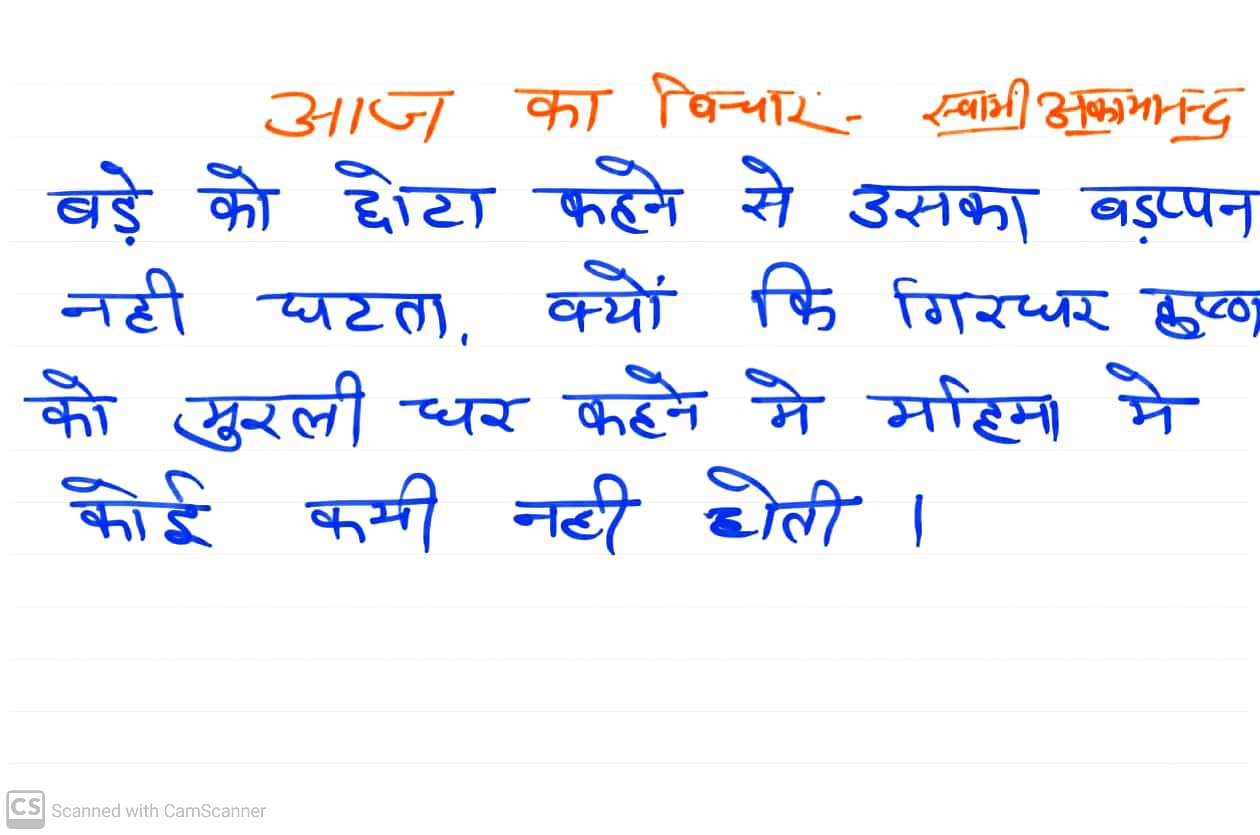 आज का विचार - स्वामी अकामानन्द
बड़े को छोटा कहने से उसका बड़प्पन
नही घटता, क्यों कि गिरधर कृष्ण
को मुरली धर कहने मे महिमा मे
कोई कमी नही होती ।
CS Scanned with CamScanner